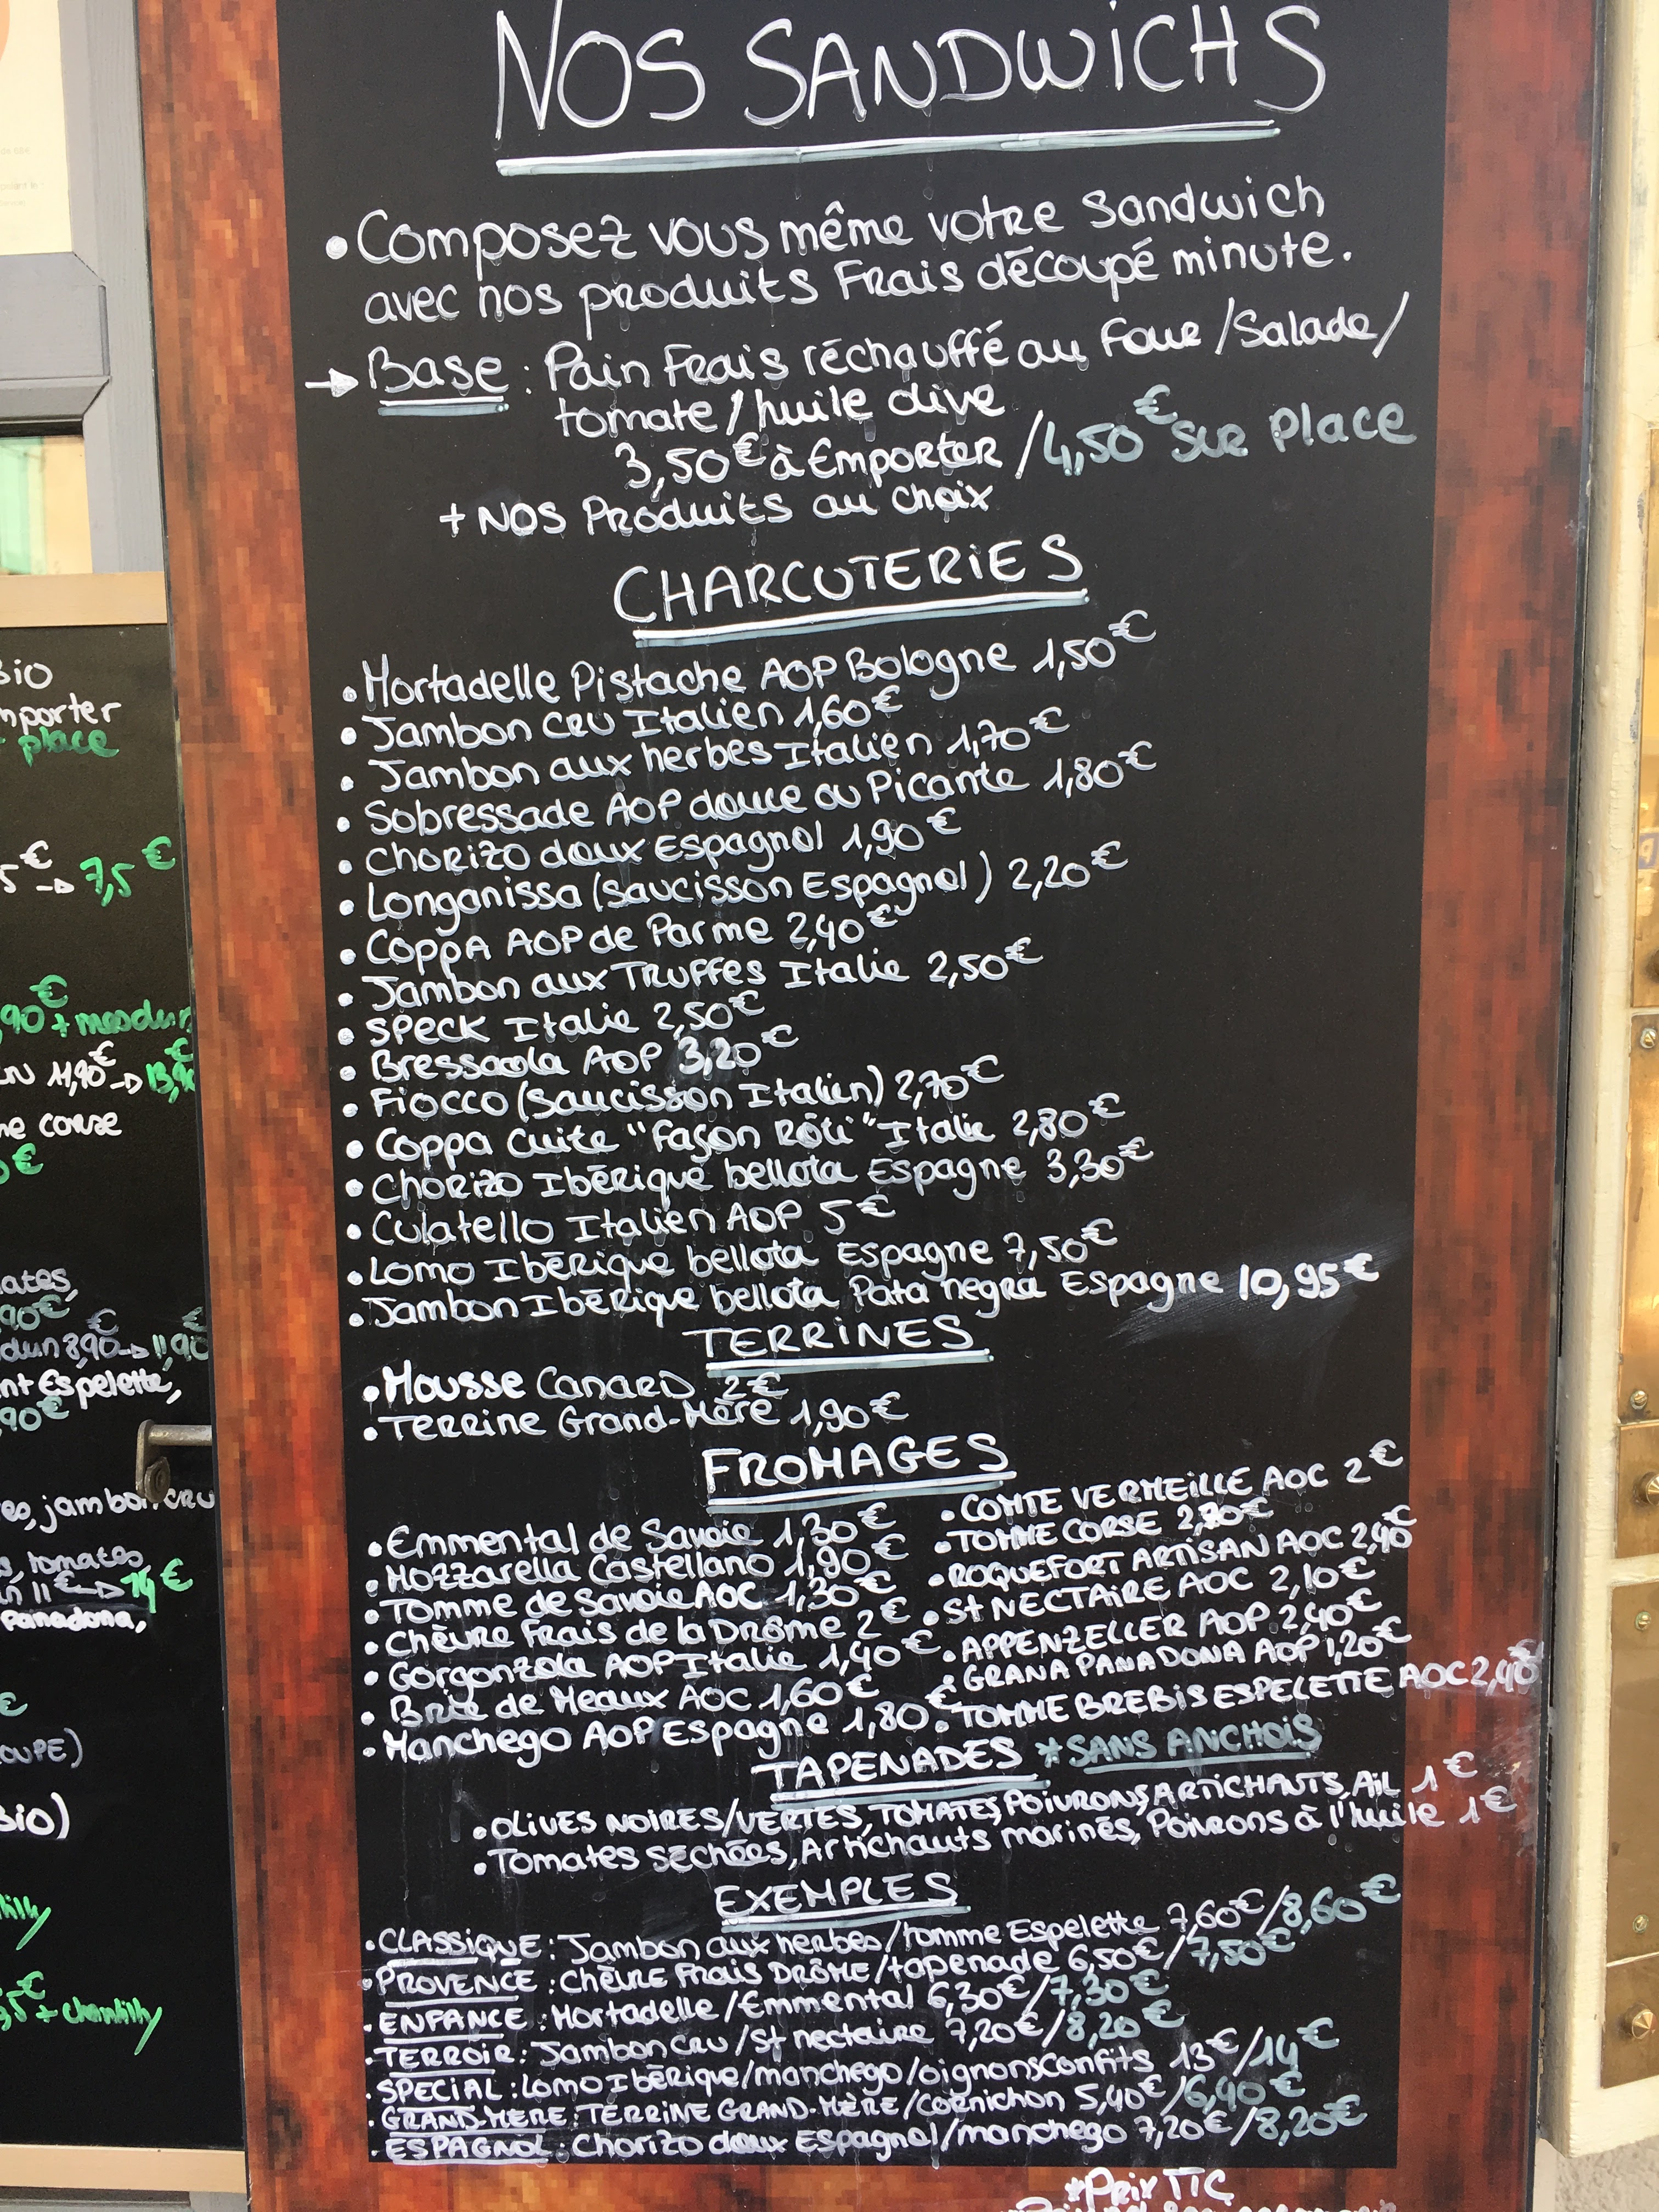 NOS SANDWICHS
• Composez vous même votre Sandwich
avec nos produits Frais découpé minute.
→ Base : Pain Frais réchauffé au Four / Salade /
tomate / huile olive
3,50€ à Emporter / 4,50€ sur place
+ NOS Produits au choix
CHARCUTERIES
• Mortadelle Pistache AOP Bologne 1,50€
• Jambon CRU Italien 1,60€
• Jambon aux herbes Italien 1,70€
• Sobressade AOP douce ou Picante 1,80€
• Chorizo doux Espagnol 1,90€
• Longanissa (saucisson Espagnol) 2,20€
• CoppA AOP de Parme 2,40€
• Jambon aux TRUFFES Italie 2,50€
• SPECK Italie 2,50€
• Bressaola AOP 3,20€
• Fiocco (saucisson Italien) 2,70€
• Coppa Cuite "façon Rôti" Italie 2,80€
• Chorizo Ibérique bellota Espagne 3,30€
• Culatello Italien AOP 5€
• Lomo Ibérique bellota Espagne 7,50€
• Jambon Ibérique bellota Pata negra Espagne 10,95€
TERRINES
• Mousse Canard 2€
• Terrine Grand-Mère 1,90€
FROMAGES
• Emmental de Savoie 1,30€
• Mozzarella Castellano 1,90€
• Tomme de Savoie AOC 1,30€
• Chèvre Frais de la Drôme 2€
• Gorgonzola AOP Italie 1,40€
• Brie de Meaux AOC 1,60€
• Manchego AOP Espagne 1,80€
• COMTE VERMEILLE AOC 2€
• TOMME CORSE
• ROQUEFORT ARTISAN AOC 2,90
• ST NECTAIRE AOC 2,10€
• APPENZELLER AOP 2,40€
• GRANA PANADONA AOP 1,20€
• TOMME BREBIS ESPELETTE AOC 2,40€
TAPENADES * SANS ANCHOIS
• OLIVES NOIRES/VERTES, TOMATES, POIVRONS, ARTICHAUTS, AIL 1€
• Tomates séchées, Artichauts marinés, Poivrons à l'huile 1€
EXEMPLES
• CLASSIQUE : Jambon aux herbes / tomme Espelette 7,60€/8,60€
• PROVENCE : Chèvre Frais DRÔME / tapenade 6,50€/7,50€
• ENFANCE : Mortadelle / Emmental 6,30€/7,30€
• TERROIR : Jambon Cru / St nectaire 7,20€/8,20€
• SPECIAL : Lomo Ibérique / manchego / oignons Confits 13€/14€
• GRAND-MERE : TERRINE GRAND-MÈRE / Cornichon 5,40€/6,40€
• ESPAGNOL : Chorizo doux Espagnol / manchego 7,20€/8,20€
* Prix TTC
BIO
mporter
place
5€ → 7,5€
,90€ + mesclun
11,90€ → 13,90
ne corse
€
mates,
,90€
clun 8,90€ → 11,90€
nt Espelette,
,90€
es, jambon cru
s, tomates
n 11€ → 14€
Panadona,
€
OUPE)
BIO)
tilly
,5€ + chantilly